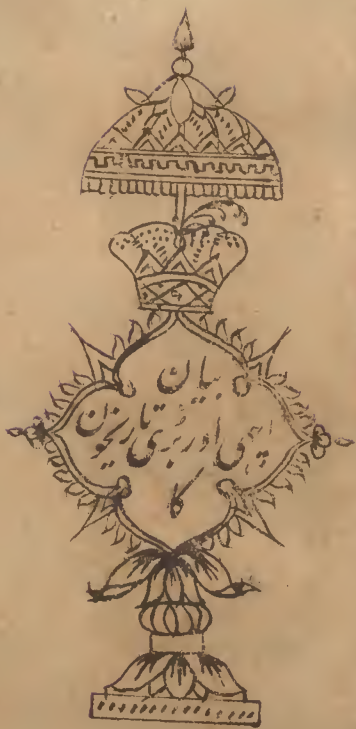 بیان
اچھی اور بری تاریخون
کا